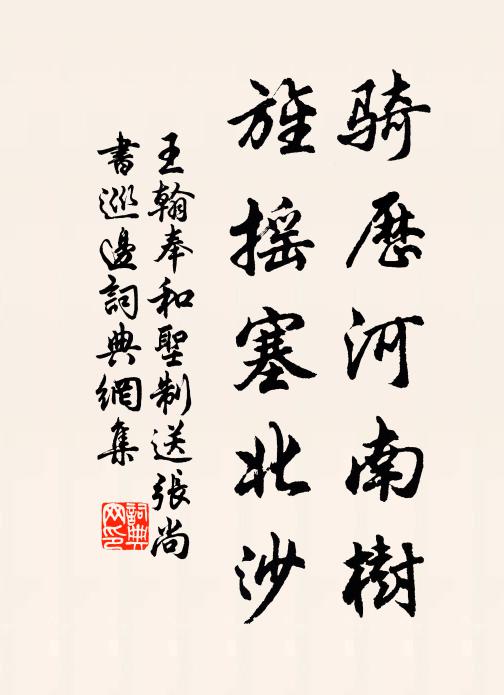 骑历河南樹
旌摇塞北沙
王翰奉和聖制送張尚
書巡邊詞典網集
詞典网印